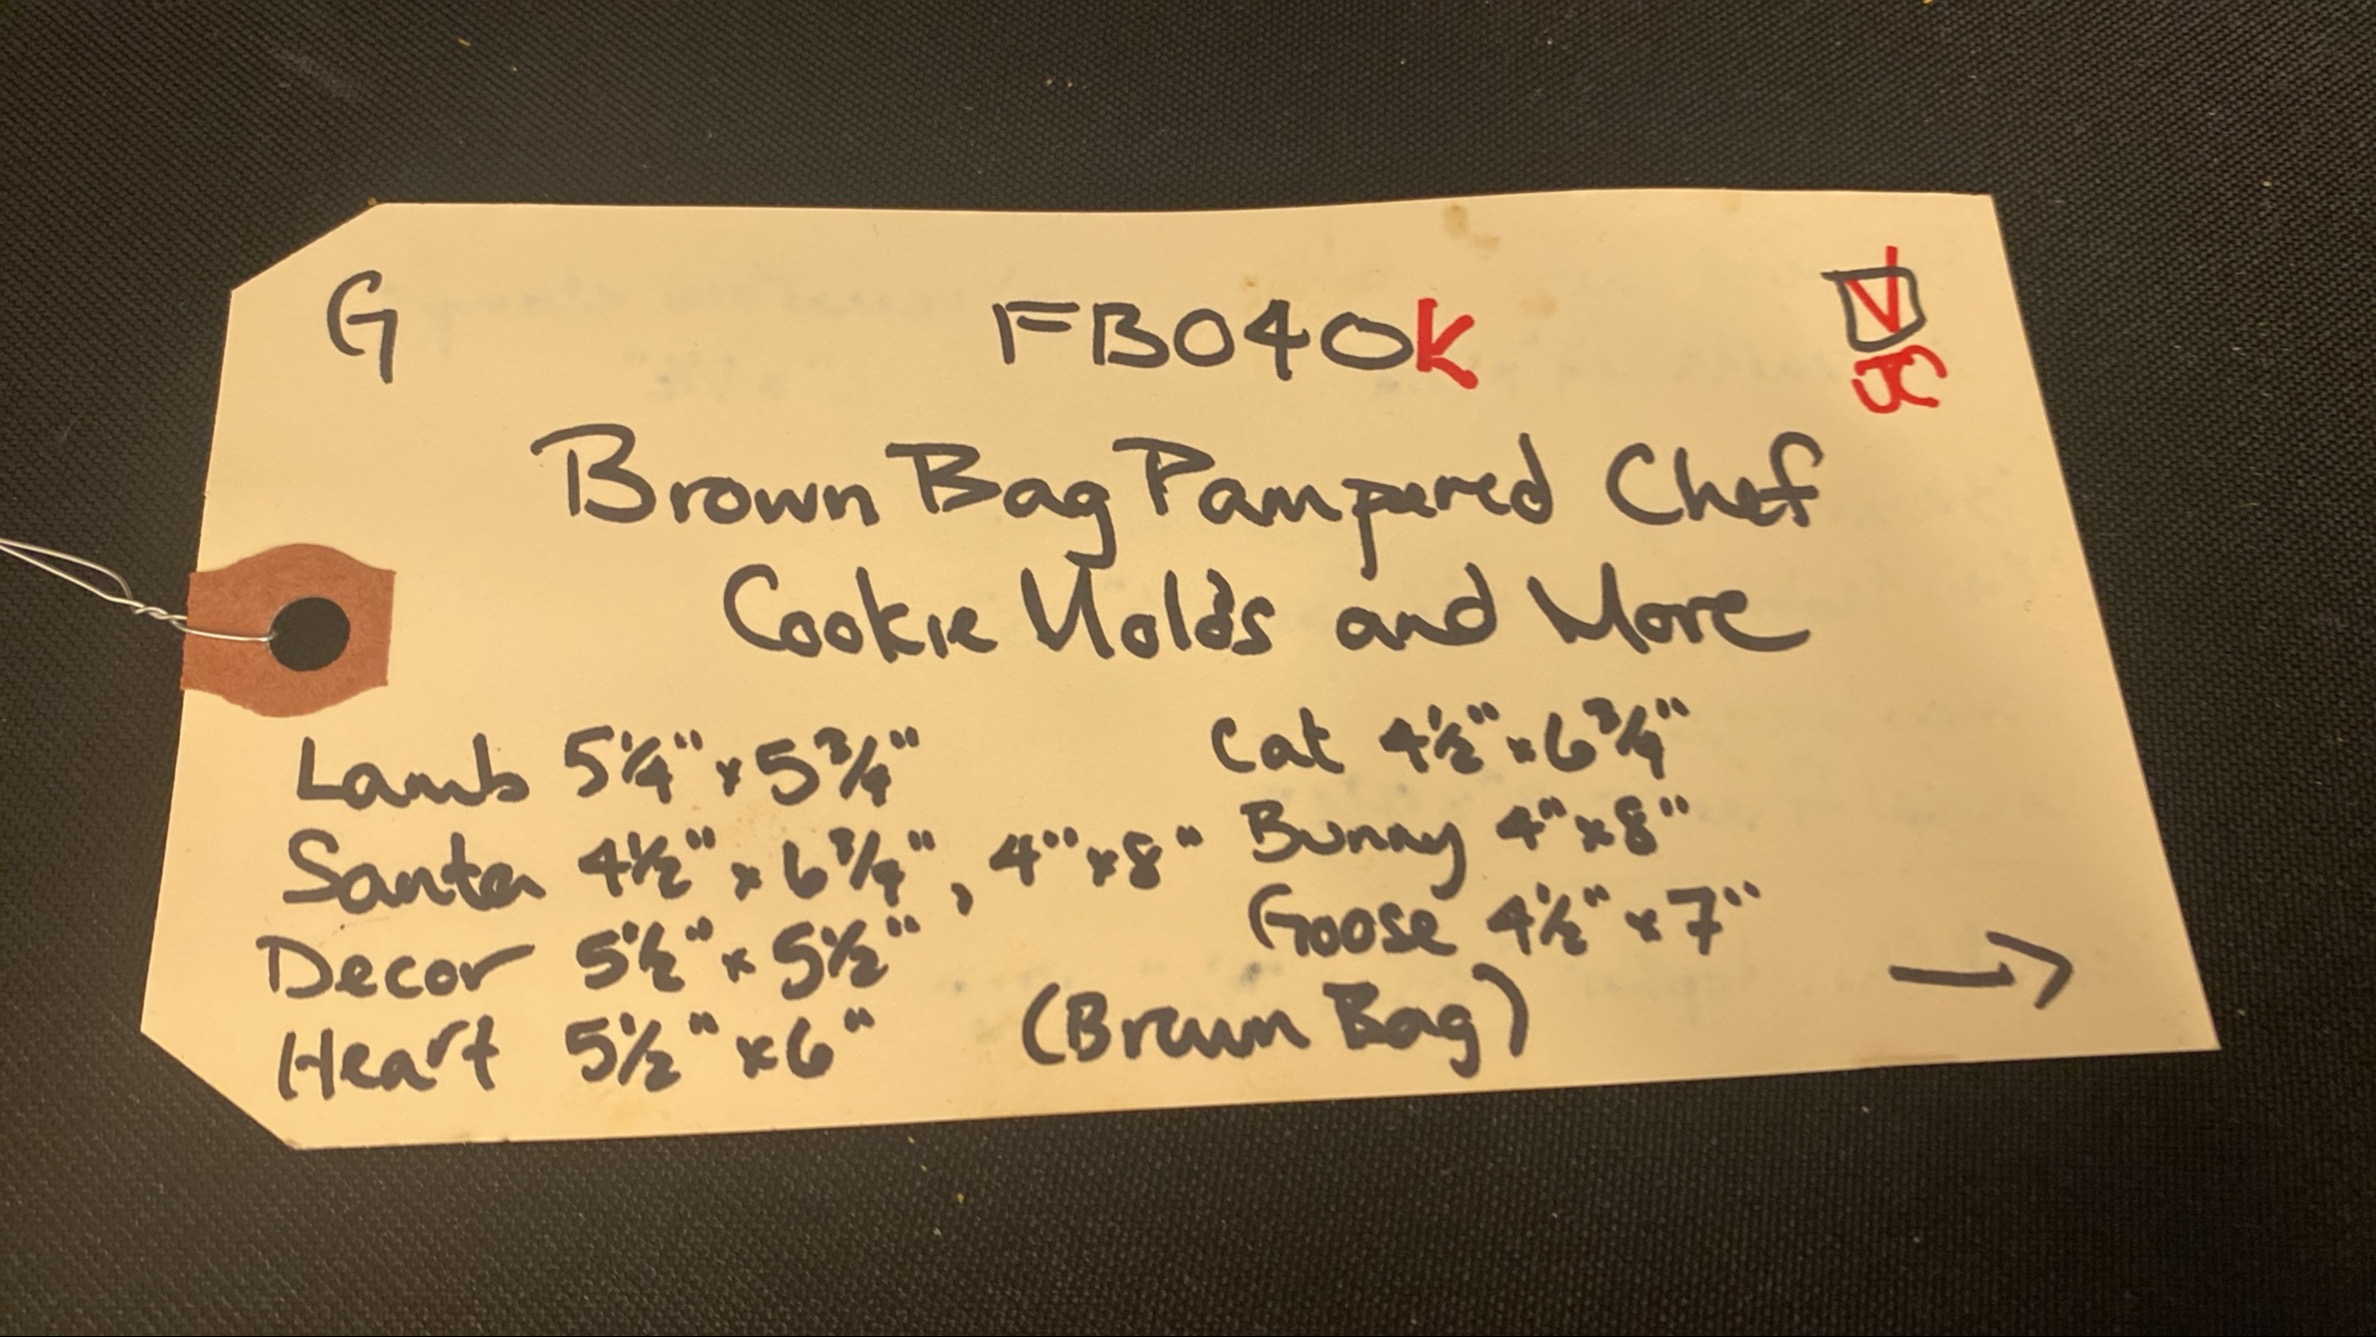 G FB040K
JC
Brown Bag Pampered Chef
Cookie Molds and More
Lamb 5¼" x 5¾"
Santa 4½" x 6¾", 4" x 8"
Decor 5½" x 5½"
Heart 5½" x 6"
Cat 4½" x 6¾"
Bunny 4" x 8"
Goose 4½" x 7"
(Brown Bag) →